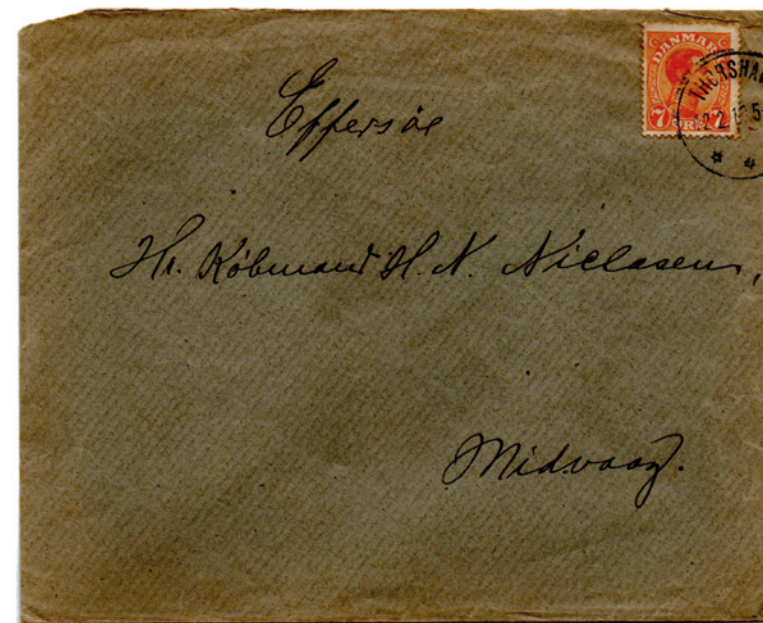 DANMARK
7 ØRE 7
THORSHA
Effersöe
Hr. Købmand H. N. Niclasen,
Midvaag.